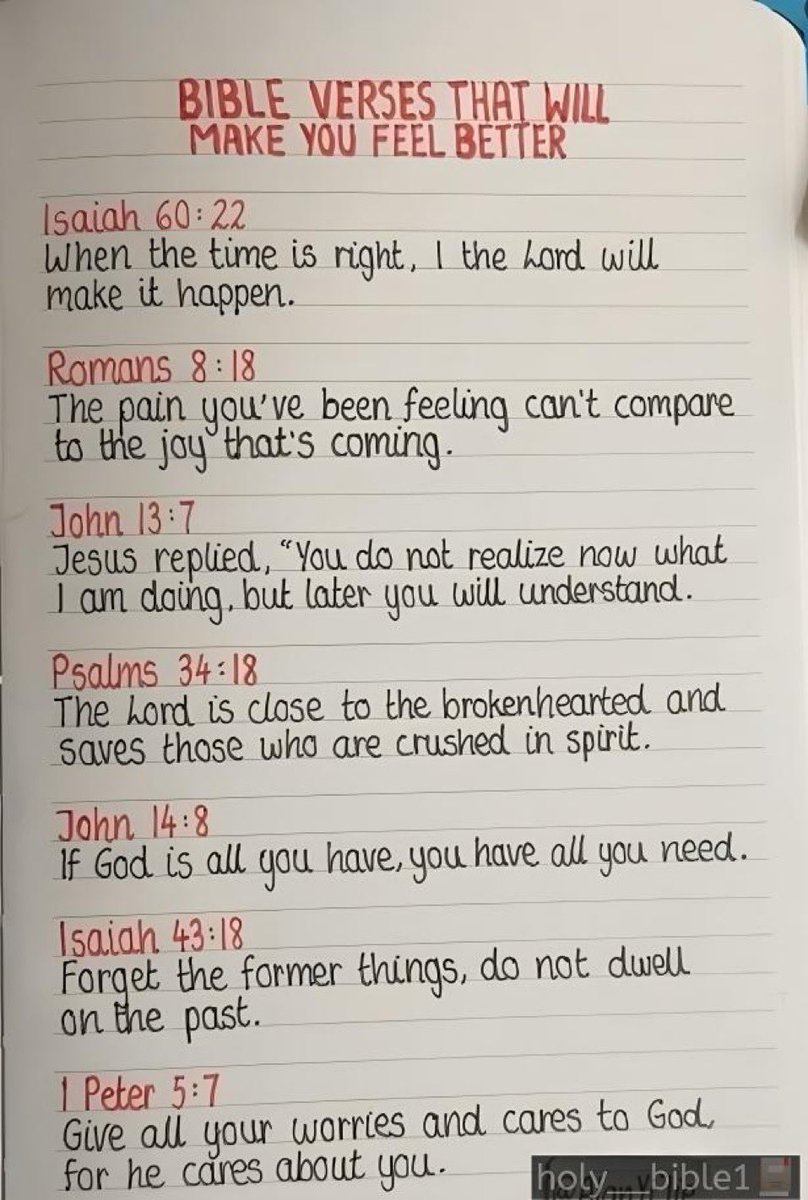 BIBLE VERSES THAT WILL
MAKE YOU FEEL BETTER
Isaiah 60:22
When the time is right, I the Lord will
make it happen.
Romans 8:18
The pain you've been feeling can't compare
to the joy that's coming.
John 13:7
Jesus replied, “You do not realize now what
I am doing, but later you will understand.
Psalms 34:18
The Lord is close to the brokenhearted and
saves those who are crushed in spirit.
John 14:8
If God is all you have, you have all you need.
Isaiah 43:18
Forget the former things, do not dwell
on the past.
1 Peter 5:7
Give all your worries and cares to God,
for he cares about you.
holy__bible1